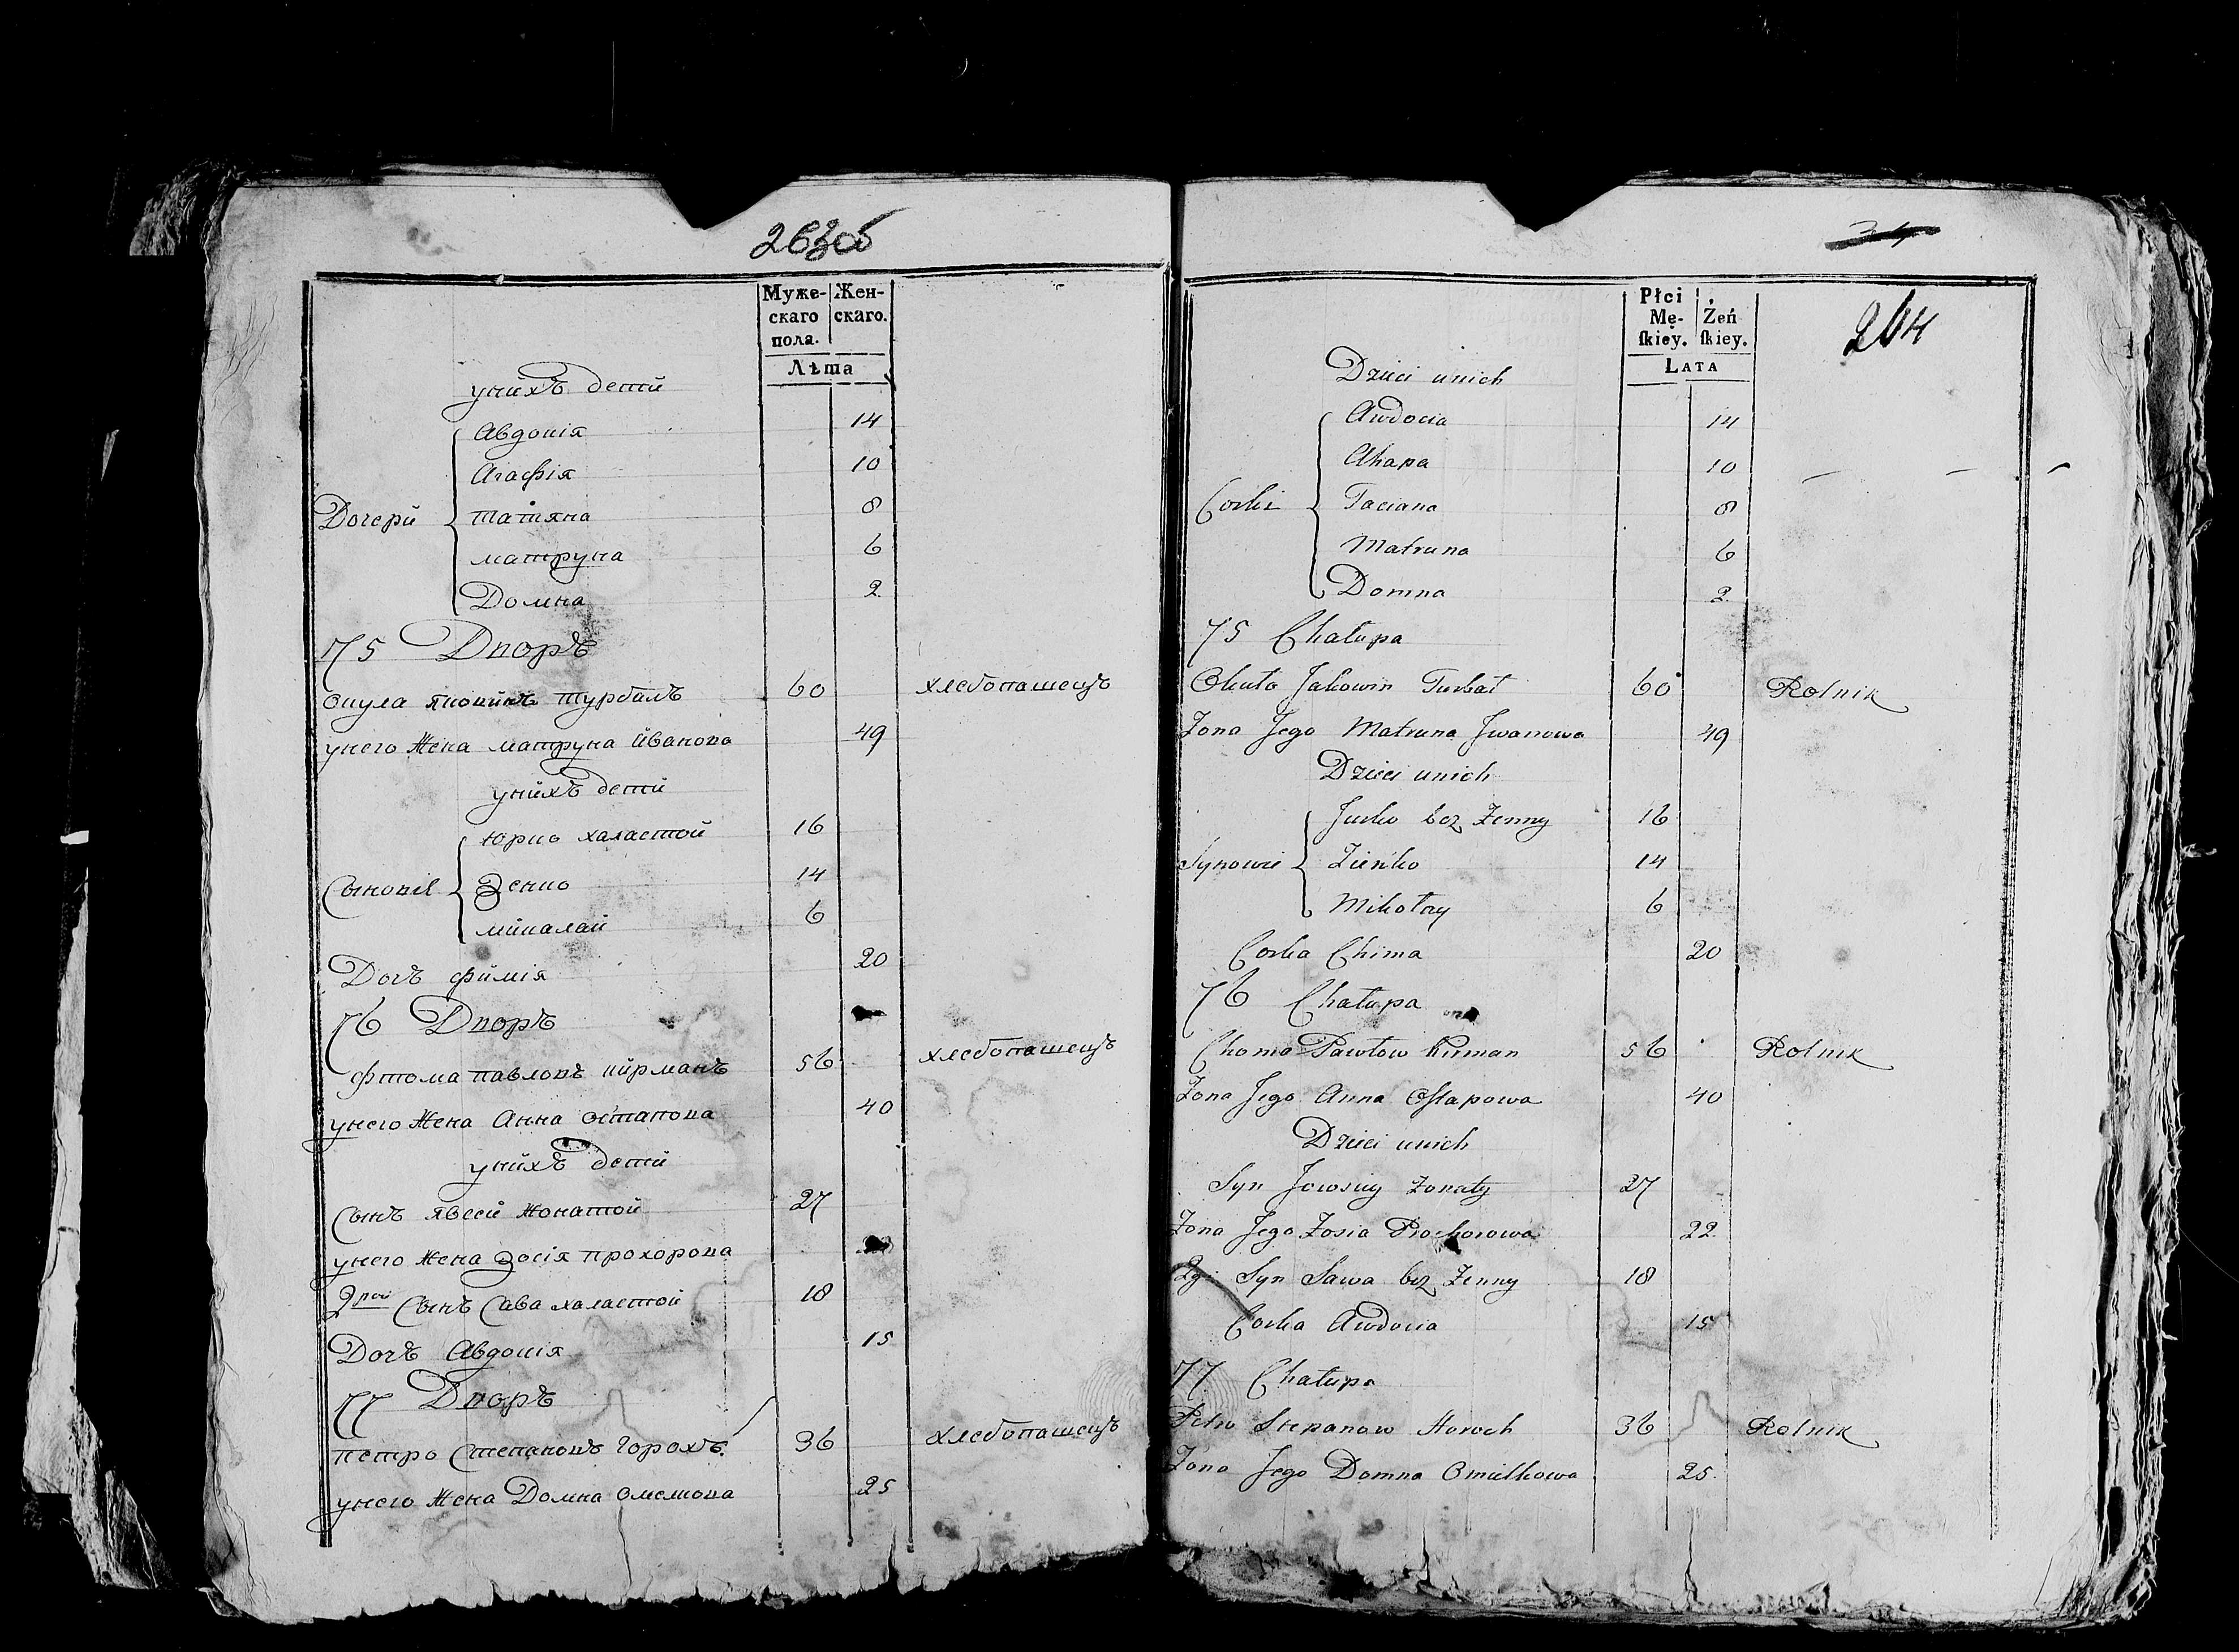 263об
Муже- Жен-
скаго скаго.
пола.
Лѣта
унихъ дети
Авдокія 14
Агафія 10
Дочери Татяна 8
матруна 6
Домна 2
75 Дворъ
окула яковинъ турбалъ 60 хлебопашецъ
унего жена матруна иванова 49
унихъ дети
Юрко халастой 16
Сынови Зенко 14
микалай 6
Дочъ фимія 20
76 Дворъ
фтома павловъ кирманъ 56 хлебопашецъ
унего жена Анна остапова 40
унихъ дети
Сынъ явсей жонатой 27
унего жена зосія прохорова
2рой Сынъ Сава халастой 18
Дочъ Авдокія 15
77 Дворъ
петро Степановъ Горохъ 36 хлебопашецъ
унего жена Домна омелкова 25
34
264
Płci Żeń
Mę- skiey.
skiey.
LATA
Dzieci unich
Awdocia 14
Ahapa 10
Corki Taciana 8
Matruna 6
Domna 2
75 Chałupa
Okuła Jakowin Turbał 60 Rolnik
Zona Jego Matruna Jwanowa 49
Dzieci unich
Jurko bez Zenny 16
Synowie Zieńko 14
Mikołay 6
Corka Chima 20
76 Chałupa
Choma Pawłow Kirman 56 Rolnik
Zona Jego Anna Ostapowa 40
Dzieci unich
Syn Jowsiey Zonaty 27
Zona Jego Zosia Prochorowa 22
2gi Syn Sawa bez Zenny 18
Corka Awdocia 15
77 Chałupa
Petro Stepanow Horoch 36 Rolnik
Zona Jego Domna Omielkowa 25